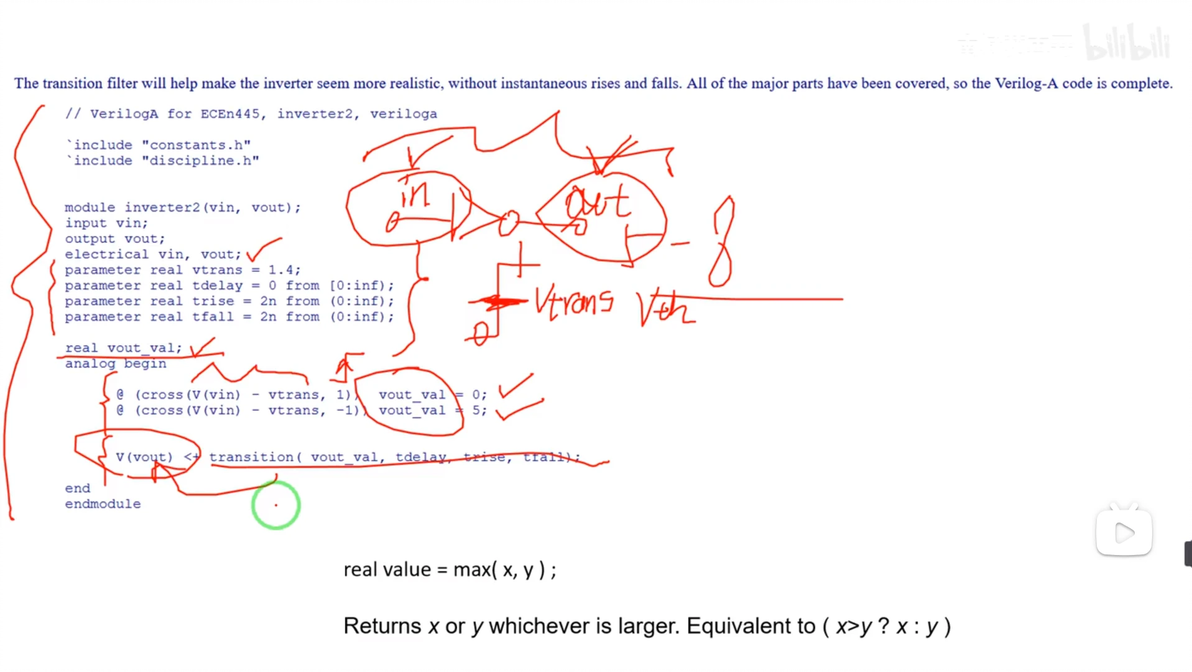 bilibili
The transition filter will help make the inverter seem more realistic, without instantaneous rises and falls. All of the major parts have been covered, so the Verilog-A code is complete.
// VerilogA for ECEn445, inverter2, veriloga
`include "constants.h"
`include "discipline.h"
in
out
module inverter2(vin, vout);
input vin;
output vout;
electrical vin, vout;
parameter real vtrans = 1.4;
parameter real tdelay = 0 from [0:inf);
parameter real trise = 2n from (0:inf);
parameter real tfall = 2n from (0:inf);
Vtrans Vth
real vout_val;
analog begin
@ (cross(V(vin) - vtrans, 1)) vout_val = 0;
@ (cross(V(vin) - vtrans, -1)) vout_val = 5;
V(vout) <+ transition( vout_val, tdelay, trise, tfall);
end
endmodule
real value = max( x, y ) ;
Returns x or y whichever is larger. Equivalent to ( x>y ? x : y )